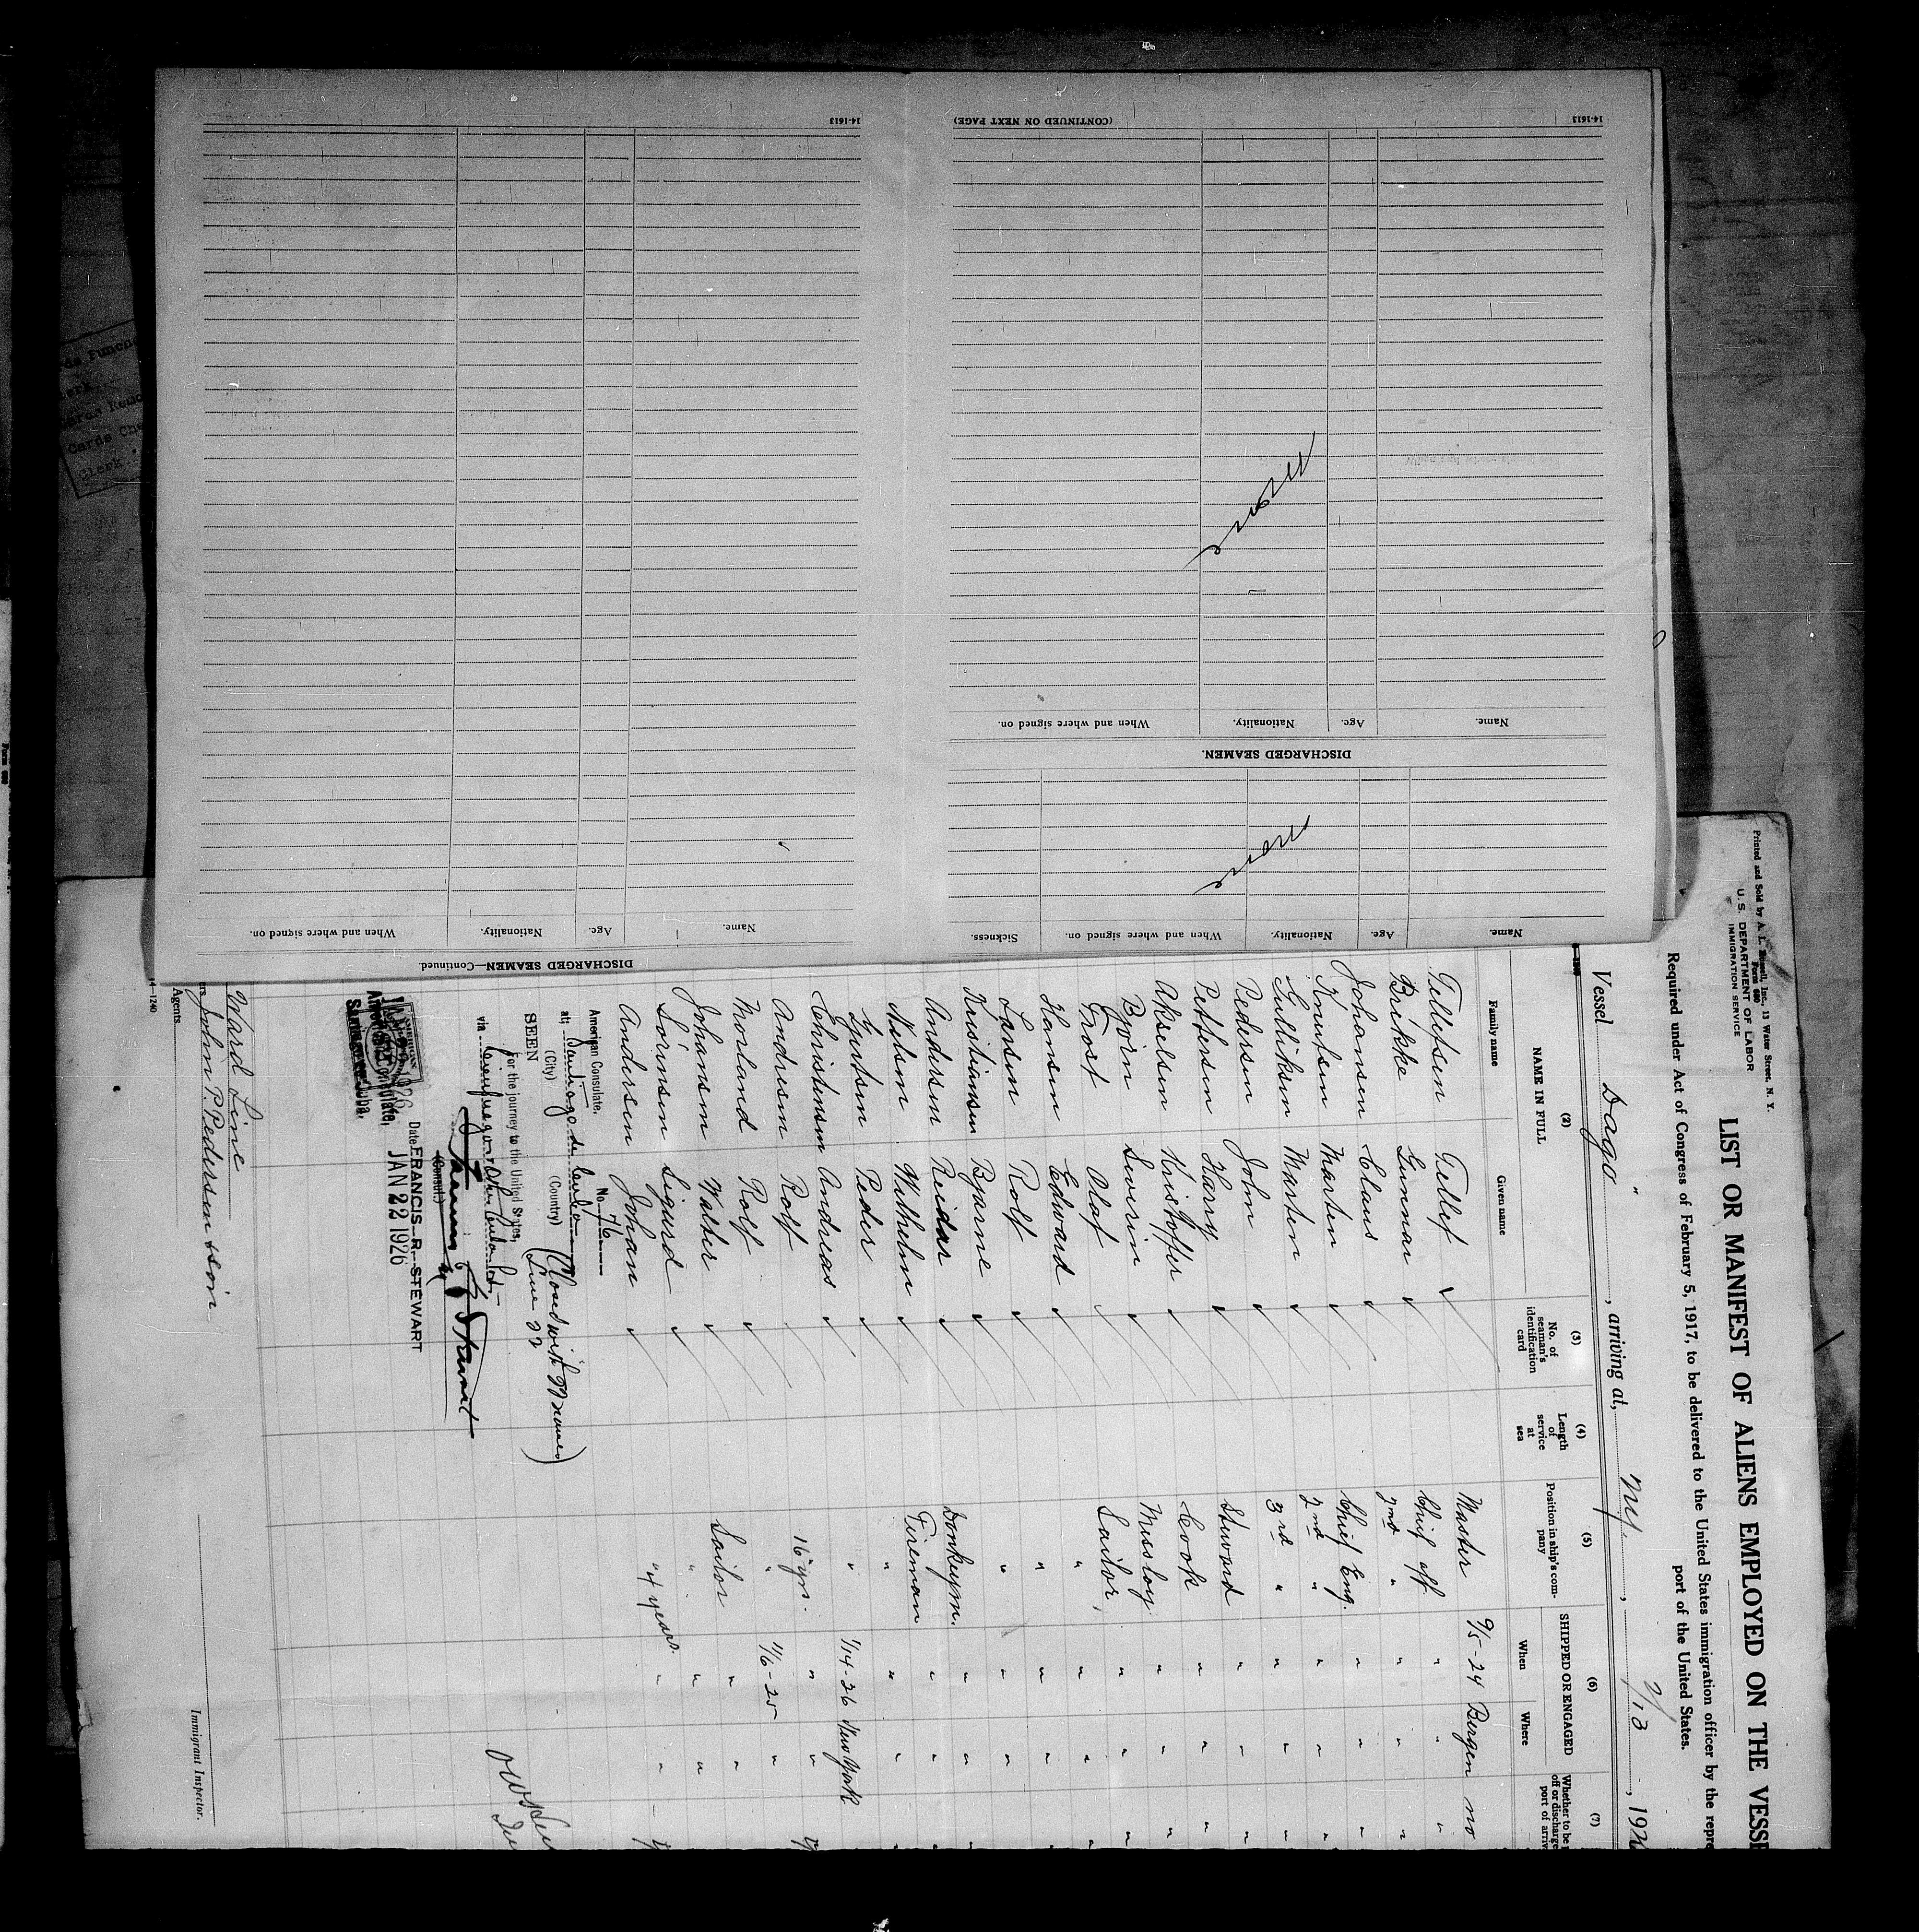 14-1613
(CONTINUED ON NEXT PAGE)
14-1613
None
Name.
Age.
Nationality.
When and where signed on.
DISCHARGED SEAMEN.
None
Name.
Age.
Nationality.
When and where signed on.
Sickness.
DISCHARGED SEAMEN—Continued.
Name.
Age.
Nationality.
When and where signed on.
Printed and Sold by A. L. Russell, Inc., 13 Water Street, N. Y.
Form 680
U. S. DEPARTMENT OF LABOR
IMMIGRATION SERVICE
LIST OR MANIFEST OF ALIENS EMPLOYED ON THE VESSE
Required under Act of Congress of February 5, 1917, to be delivered to the United States immigration officer by the repre
port of the United States.
Vessel "Dago", arriving at, NY, 2/13, 192
(2) (3) (4) (5) (6) (7)
NAME IN FULL
Family name Given name
No. of seaman's identification card
Length of service at sea
Position in ship's company
SHIPPED OR ENGAGED
When Where
Whether to be
off or discharge
port of arriv
Tellefsen Tellef Master 9/5-24 Bergen no
Brekke Gunnar Chief off " " "
Johansen Claus 2nd " " " "
Knutsen Marten Chief Eng. " " "
Gulliksen Marten 2nd " " " "
Pedersen John 3rd " " " "
Pettersen Harry Steward " " "
Akselsen Kristoffer Cook " " "
Bjorn Severin Messboy " " "
Frost Olaf Sailor " " "
Hansen Edward " " " "
Larsen Rolf " " " "
Kristiansen Bjarne " " " "
Andersen Reidar Donkeym. " " "
Nilsen Wilhelm Fireman " " "
Peder " " " "
Christensen Andreas " 1/14-26 New York "
Andresen Rolf 16 yrs. " "
Morland Rolf " 1/6-25 "
Johansen Walter Sailor " "
Sörensen Sigurd " " "
Andersen Johan " 4 years " "
American Consulate, No. 76
at; Santiago de Cuba
(City) (Country)
SEEN
(Closed with 22 names)
Line 22
For the journey to the United States,
via Cienfuegos
FRANCIS R. STEWART
Date JAN 22 1926
(Consul)
American Consulate,
Santiago de Cuba.
Ward Line
John P. Pedersen & son
Agents
14-1240
Immigrant Inspector.
Clerk